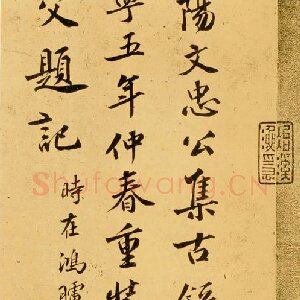 陽文忠公集古錄
寧五年仲春重裝
父題記
時在鴻臚
Shufawang.CN